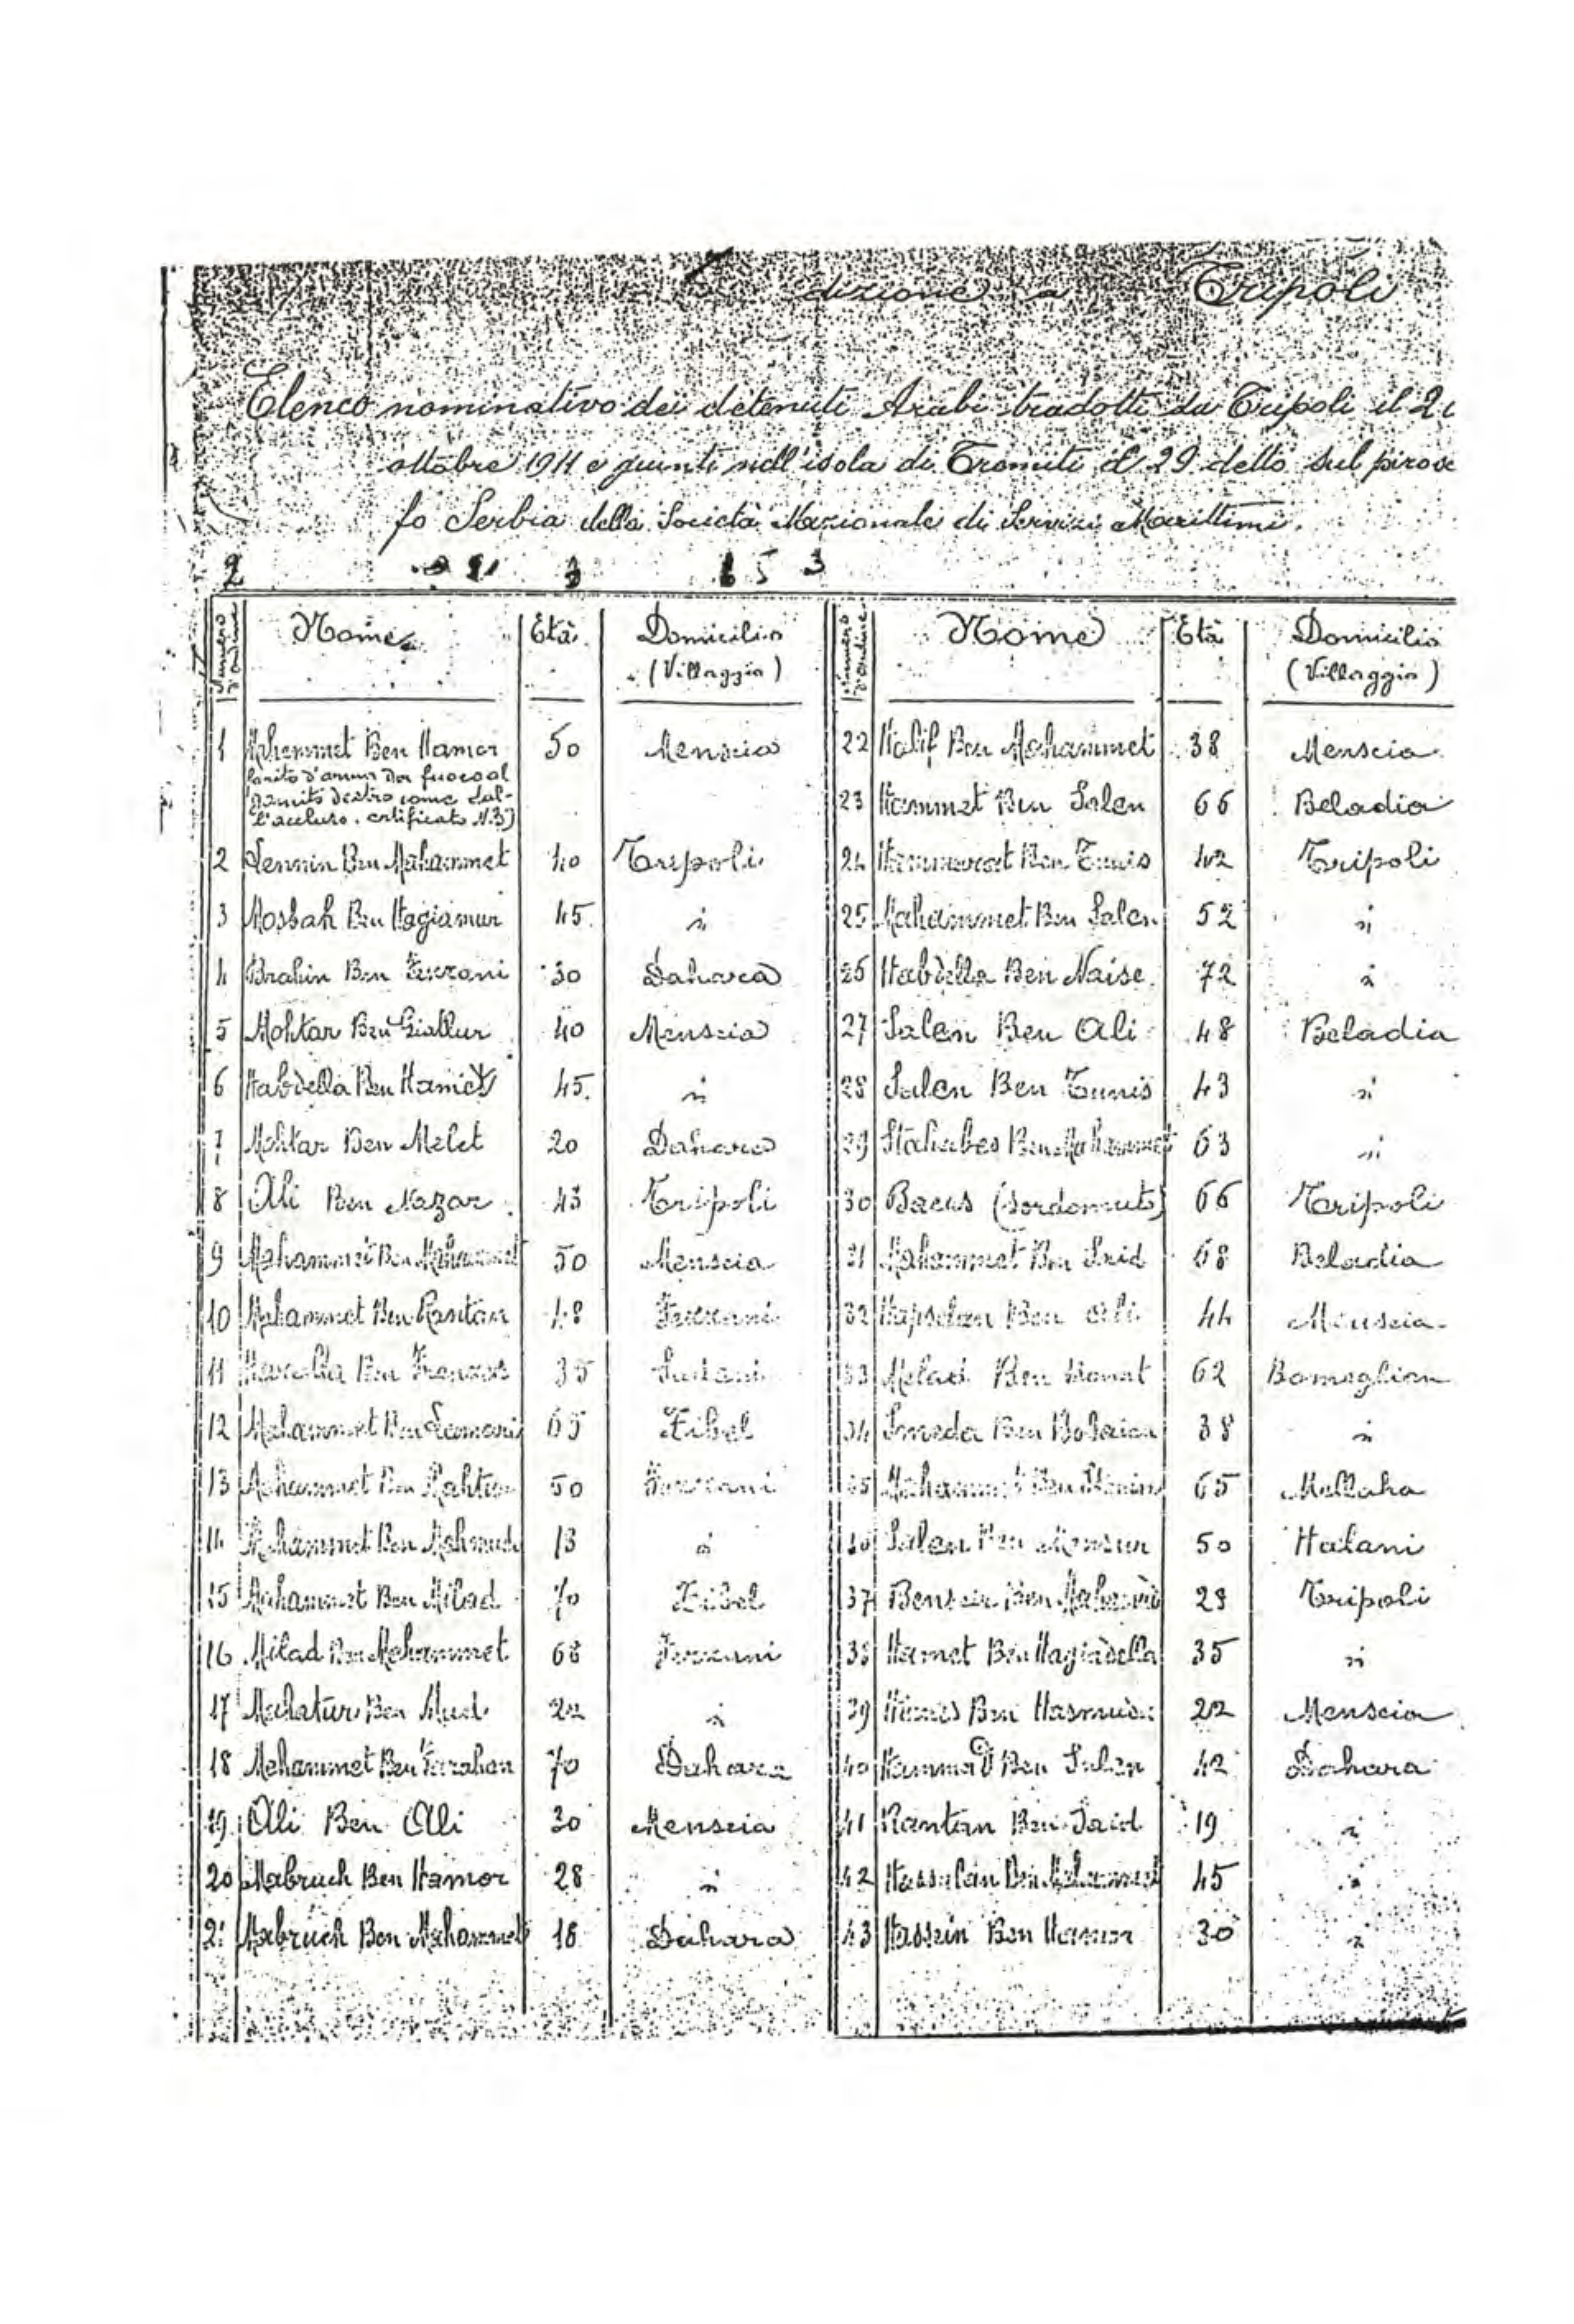 dizione a Tripoli
Elenco nominativo dei detenuti Arabi tradotti da Tripoli il 2
ottobre 1911 e giunti nell'isola di Tremiti il 29 detto sul pirosca
fo Serbia della Società Nazionale di Servizi Marittimi.
Numero d'ordine Nome Età Domicilio (Villaggio) Numero d'ordine Nome Età Domicilio (Villaggio)
1 Mahammet Ben Hamor 50 Menscia
ferito d'arma da fuoco al
gomito destro come dal-
l'accluso certificato N.3)
2 Lemmin Ben Mahammet 40 Tripoli
3 Mosbah Ben Hagiamur 45 "
4 Brahin Ben Fezzani 30 Dahara
5 Mohtar Ben Giallur 40 Menscia
6 Habdella Ben Hamet 45 "
7 Mohtar Ben Melet 20 Dahara
8 Ali Ben Nazar 43 Tripoli
9 Mahammet Ben Mahammet 50 Menscia
10 Mahammet Ben Rantan 48 Fezzani
11 Ben 35
12 Mahammet Ben 65 Zibel
13 Mahammet Ben 50 Fezzani
14 Mahammet Ben Mahmud 13 "
15 Mahammet Ben Milad 70 Zibel
16 Milad Ben Mahammet 68 Fezzani
17 Ben 22 "
18 Mahammet Ben 70 Dahara
19 Ali Ben Ali 30 Menscia
20 Mabruch Ben Hamor 28 "
21 Mabruch Ben Mahammet 18 Dahara
22 Halif Ben Mahammet 38 Menscia
23 Hammet Ben Salen 66 Beladia
24 Ben Tunis 42 Tripoli
25 Mahammet Ben Salen 52 "
26 Habdella Ben Naise 72 "
27 Salen Ben Ali 48 Beladia
28 Salen Ben Tunis 43 "
29 Ben Mahammet 63 "
30 Bacus (sordomuto) 66 Tripoli
31 Mahammet Ben Said 68 Beladia
32 Ben Ali 44 Menscia
33 Melad Ben 62 Bomeglian
34 Smeda Ben 38 "
35 Mahammet Ben 65 Mellaha
36 Salen Ben Mensur 50 Hatani
37 Ben 28 Tripoli
38 Hamet Ben Hagiadella 35 "
39 Ben 22 Menscia
40 Hammad Ben Salen 42 Dahara
41 Rantan Ben Said 19 "
42 Ben Mahammet 45 "
43 Hassein Ben Hamor 30 "